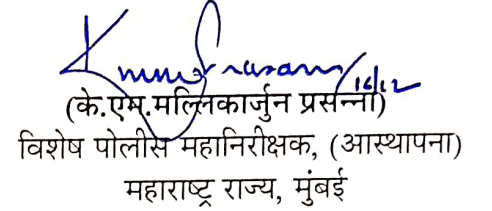 16/12
(के.एम.मल्लिकार्जुन प्रसन्ना)
विशेष पोलीस महानिरीक्षक, (आस्थापना)
महाराष्ट्र राज्य, मुंबई